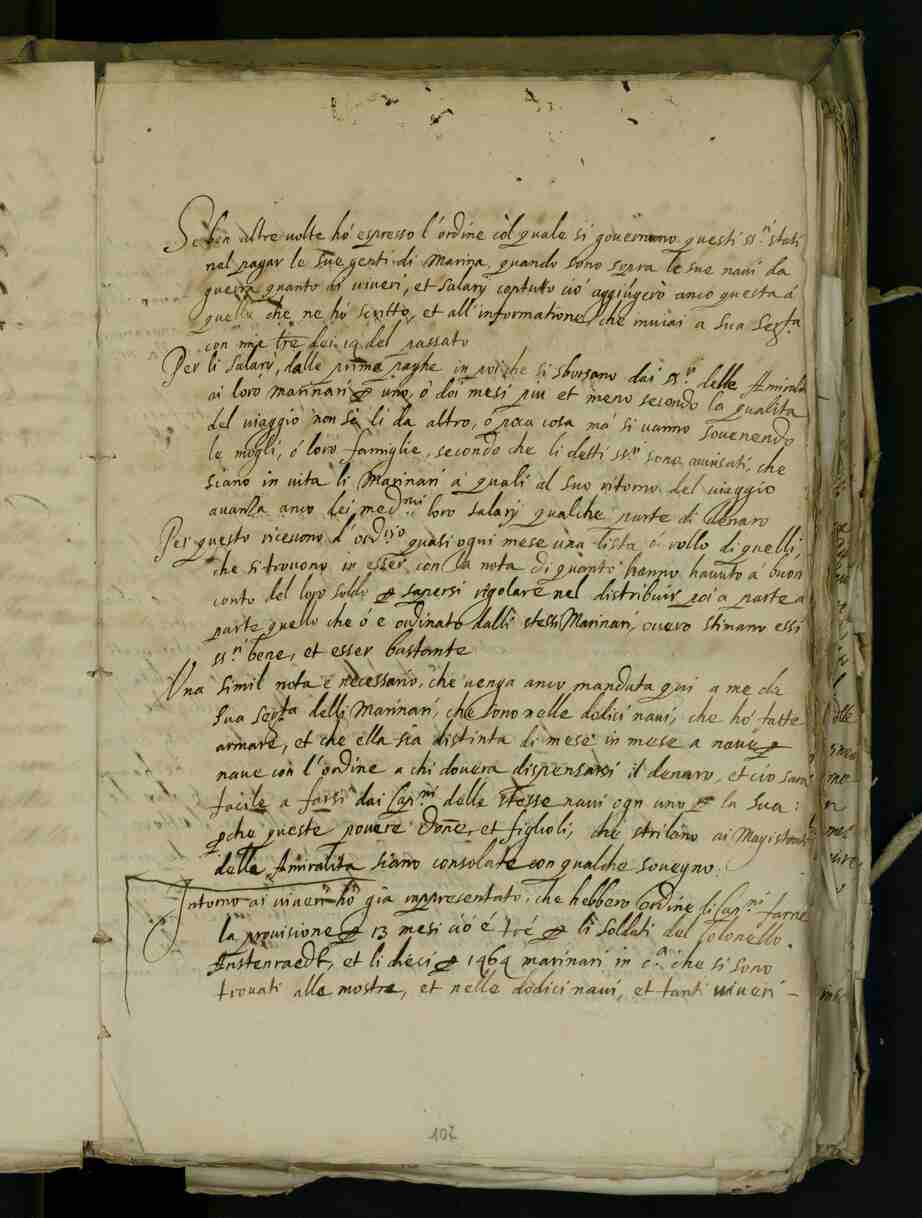 Se ben altre uolte hò espresso l'ordine còl quale si gouernano questi ss.ri stati
nel pagar le sue genti di Marina quando sono sopra le sue naui da
guerra quanto ai viueri, et salarÿ contutto ciò aggiúgerò anco questa á
quello che ne hó scritto, et all'informatione che inuiai a Sua Serta
con mie tre dei 19 del passato
Per li salarÿ, dalle prime paghe in poi che si sborsano dai ss.ri delle Amiralità
ai loro marinari p uno, ò doi mesi piu et meno secondo la qualita
del uiaggio non se li da altro, o poca cosa ma si uanno souenendo
le mogli, ó loro famiglie, secondo che li detti ss.ri sono auuisati, che
siano in uita li Marinari a quali al suo ritorno del uiaggio
auanza anco dei medmi loro salarÿ qualche parte di denaro
Per questo riceuono d'ordrio quasi ogni mese una lista ó rollo di quelli,
che si trouono in esser con la nota di quanto hanno hauuto á buon
conto del loro soldo p sapersi rigolare nel distribuir poi a parte a
parte quello che ó é ordinato dalli stessi Marinari, ouero stimano essi
ss.ri bene, et esser bastante
Una simil nota é necessario, che uenga anco mandata qui a me da
Sua Serta delli Marinari, che sono nelle dodici naui, che hó fatte
armare, et che ella sia distinta di mese in mese a naue p
naue con l'ordine a chi douera dispensarsi il denaro, et ció sara
facile a farsi dai Capni delle stesse naui ogn uno p la sua:
pche queste pouere Done, et figlioli, che strilano ai Magistrati
delle Amiralita siano consolate con qualche souegno.
Intorno ai uiueri hó già rappresentato, che hebbero ordine li Capni farne
la prouisione p 13 mesi ció é tré p li soldati del Colonello
Anstenraedt, et li dieci p 1464 marinari in ca che si sono
trouati alle mostre, et nelle dodici naui, et tanti uiueri -
107